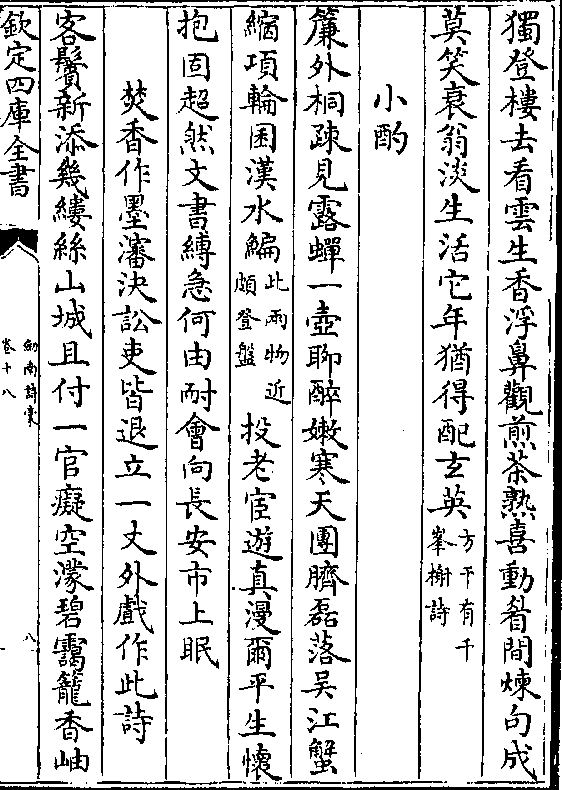 獨登樓去看雲生香浮鼻觀煎茶熟喜動眉間煉句成
莫笑衰翁淡生活它年猶得配玄英方干有千
峯榭詩
小酌
簾外桐疎見露蟬一壺聊醉嫩寒天團臍磊落吳江蟹
縮項輪囷漢水鯿此兩物近
頗登盤投老宦遊真漫爾平生懷
抱固超然文書縛急何由耐會向長安市上眠
焚香作墨瀋決訟吏皆退立一丈外戲作此詩
客鬢新添幾縷絲山城且付一官癡空濛碧靄籠香岫
欽定四庫全書
劒南詩稾
卷十八
八